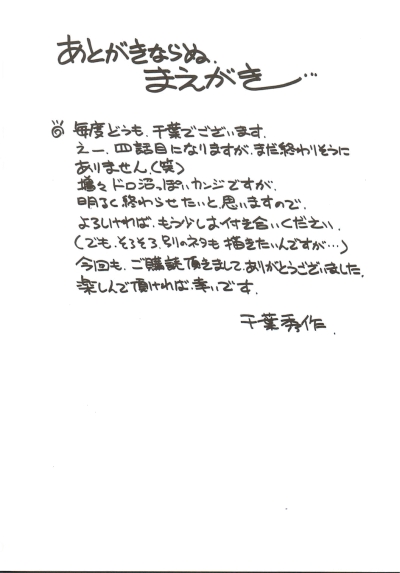 あとがきならぬ、
まえがき…
◎ 毎度どうも、千葉でございます。
えー、四話目になりますが、まだ終わりそうに
ありません。(笑)
増々ドロ沼っぽいカンジですが、
明るく終わらせたいと、思いますので、
よろしければ、もう少しお付き合いください。
(でも、そろそろ別のネタも描きたいんですが…)
今回も、ご購読頂きまして、ありがとうございました。
楽しんで頂ければ、幸いです。
千葉秀作.